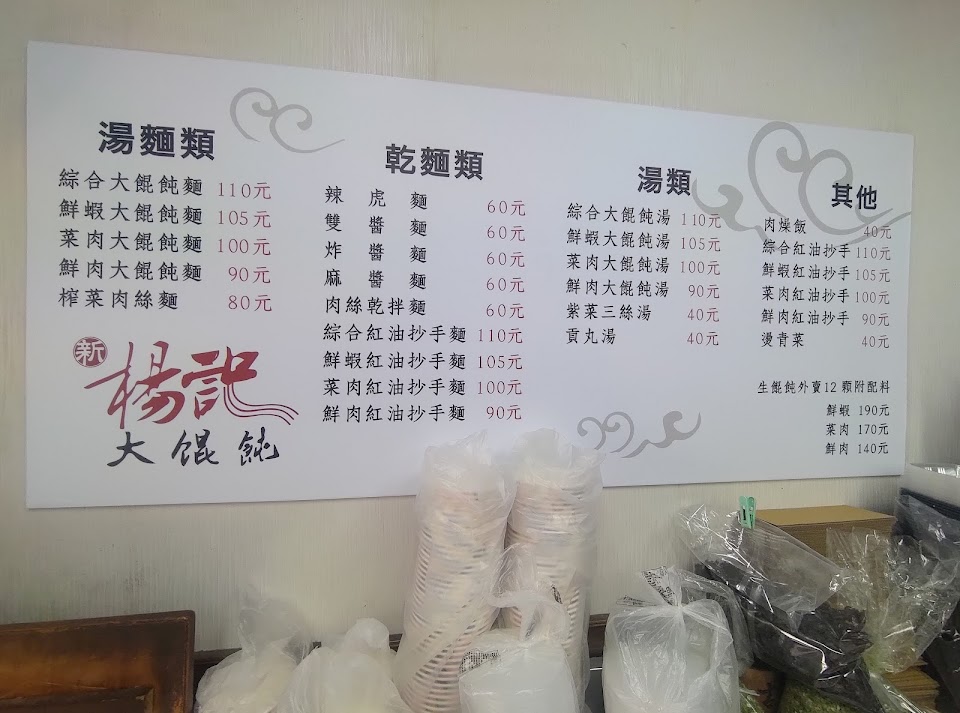 湯麵類
綜合大餛飩麵 110元
鮮蝦大餛飩麵 105元
菜肉大餛飩麵 100元
鮮肉大餛飩麵 90元
榨菜肉絲麵 80元
新
楊記
大餛飩
乾麵類
辣虎麵 60元
雙醬麵 60元
炸醬麵 60元
麻醬麵 60元
肉絲乾拌麵 60元
綜合紅油抄手麵 110元
鮮蝦紅油抄手麵 105元
菜肉紅油抄手麵 100元
鮮肉紅油抄手麵 90元
湯類
綜合大餛飩湯 110元
鮮蝦大餛飩湯 105元
菜肉大餛飩湯 100元
鮮肉大餛飩湯 90元
紫菜三絲湯 40元
貢丸湯 40元
其他
肉燥飯 40元
綜合紅油抄手 110元
鮮蝦紅油抄手 105元
菜肉紅油抄手 100元
鮮肉紅油抄手 90元
燙青菜 40元
生餛飩外賣12顆附配料
鮮蝦 190元
菜肉 170元
鮮肉 140元